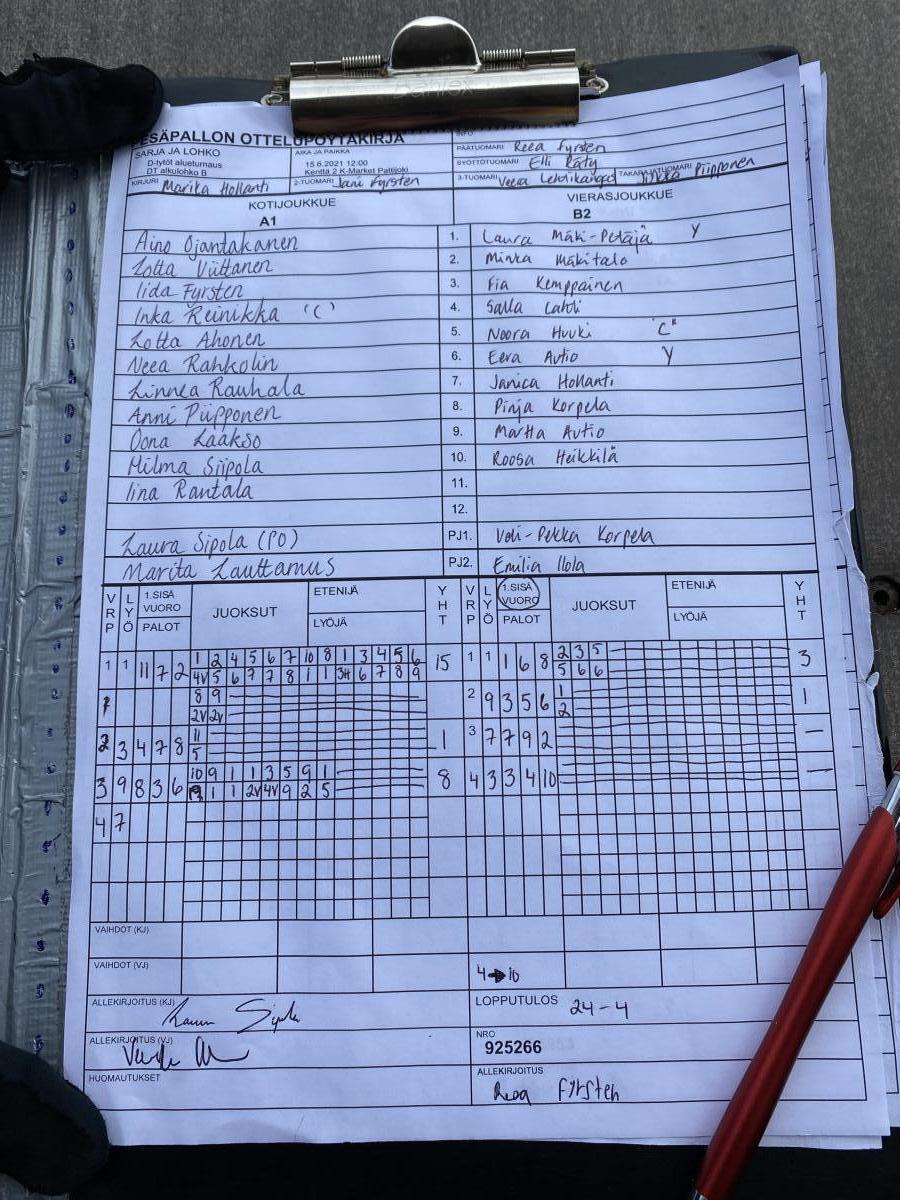 Dahlex
PESÄPALLON OTTELUPÖYTÄKIRJA INFO
SARJA JA LOHKO AIKA JA PAIKKA PÄÄTUOMARI Reea Fyrsten
D-tytöt alueturnaus 15.6.2021 12:00 SYÖTTÖTUOMARI Elli Räty
DT alkulohko B Kenttä 2 K-Market Pattijoki
KIRJURI Marika Hollanti 2-TUOMARI Jani Fyrsten 3-TUOMARI Veera Lehtikangas TAKARAJATUOMARI Jukka Piipponen
KOTIJOUKKUE VIERASJOUKKUE
A1 B2
Aino Ojantakanen 1. Laura Mäki-Petäjä Y
Lotta Viittanen 2. Minka Mäkitalo
Iida Fyrsten 3. Fia Kemppainen
Inka Reinikka "C" 4. Salla Lahti
Lotta Ahonen 5. Noora Huuki "C"
Neea Rahkolin 6. Eera Autio Y
Linnea Rauhala 7. Janica Hollanti
Anni Piipponen 8. Pinja Korpela
Oona Laakso 9. Martta Autio
Milma Siipola 10. Roosa Heikkilä
Iina Rantala 11.
12.
Laura Sipola (PO) PJ1. Veli-Pekka Korpela
Marita Lauttamus PJ2. Emilia Ilola
VRP LYÖ 1.SISÄ VUORO PALOT JUOKSUT ETENIJÄ LYÖJÄ YHT VRP LYÖ 1.SISÄ VUORO PALOT JUOKSUT ETENIJÄ LYÖJÄ YHT
1 1 11 7 2 1 2 4 5 6 7 10 8 1 3 4 5 6 15 1 1 1 6 8 2 3 5 3
4V 5 6 7 7 8 1 1 3H 6 7 8 9 5 6 6
8 9 2 9 3 5 6 1 1
2V 2V 2
2 3 4 7 8 11 1 3 7 7 9 2 —
5
3 9 8 3 6 10 9 1 1 3 5 9 1 8 4 3 3 4 10 —
1 1 2V 4V 9 2 5
4 7
VAIHDOT (KJ)
VAIHDOT (VJ) 4➔10
ALLEKIRJOITUS (KJ) Laura Sipola LOPPUTULOS 24-4
ALLEKIRJOITUS (VJ) NRO
925266
HUOMAUTUKSET ALLEKIRJOITUS
Reea Fyrsten